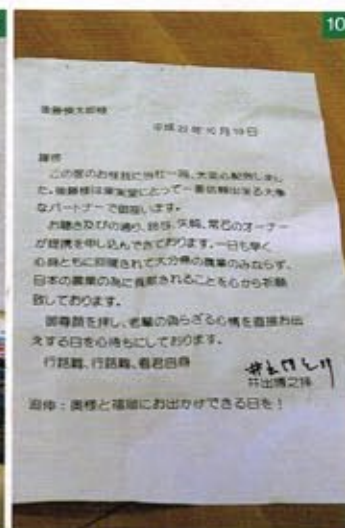 10
後藤慎太郎様
平成22年10月19日
謹啓
この度のお怪我に当社一同、大変心配致しまし
た。後藤様は果実堂にとって一番信頼出来る大事
なパートナーで御座います。
お聴き及びの通り、矢崎、常石のオーナー
が提携を申し込んできております。一日も早く、
心身ともに回復されて大分県の農業のみならず、
日本の農業の為に貢献されることを心から祈願
致しております。
御尊顔を拝し、老輩の偽らざる心情を直接お伝
えする日を心待ちにしております。
行路難、行路難、看君自身
井出博之拝
追伸：奥様と福岡にお出かけできる日を！